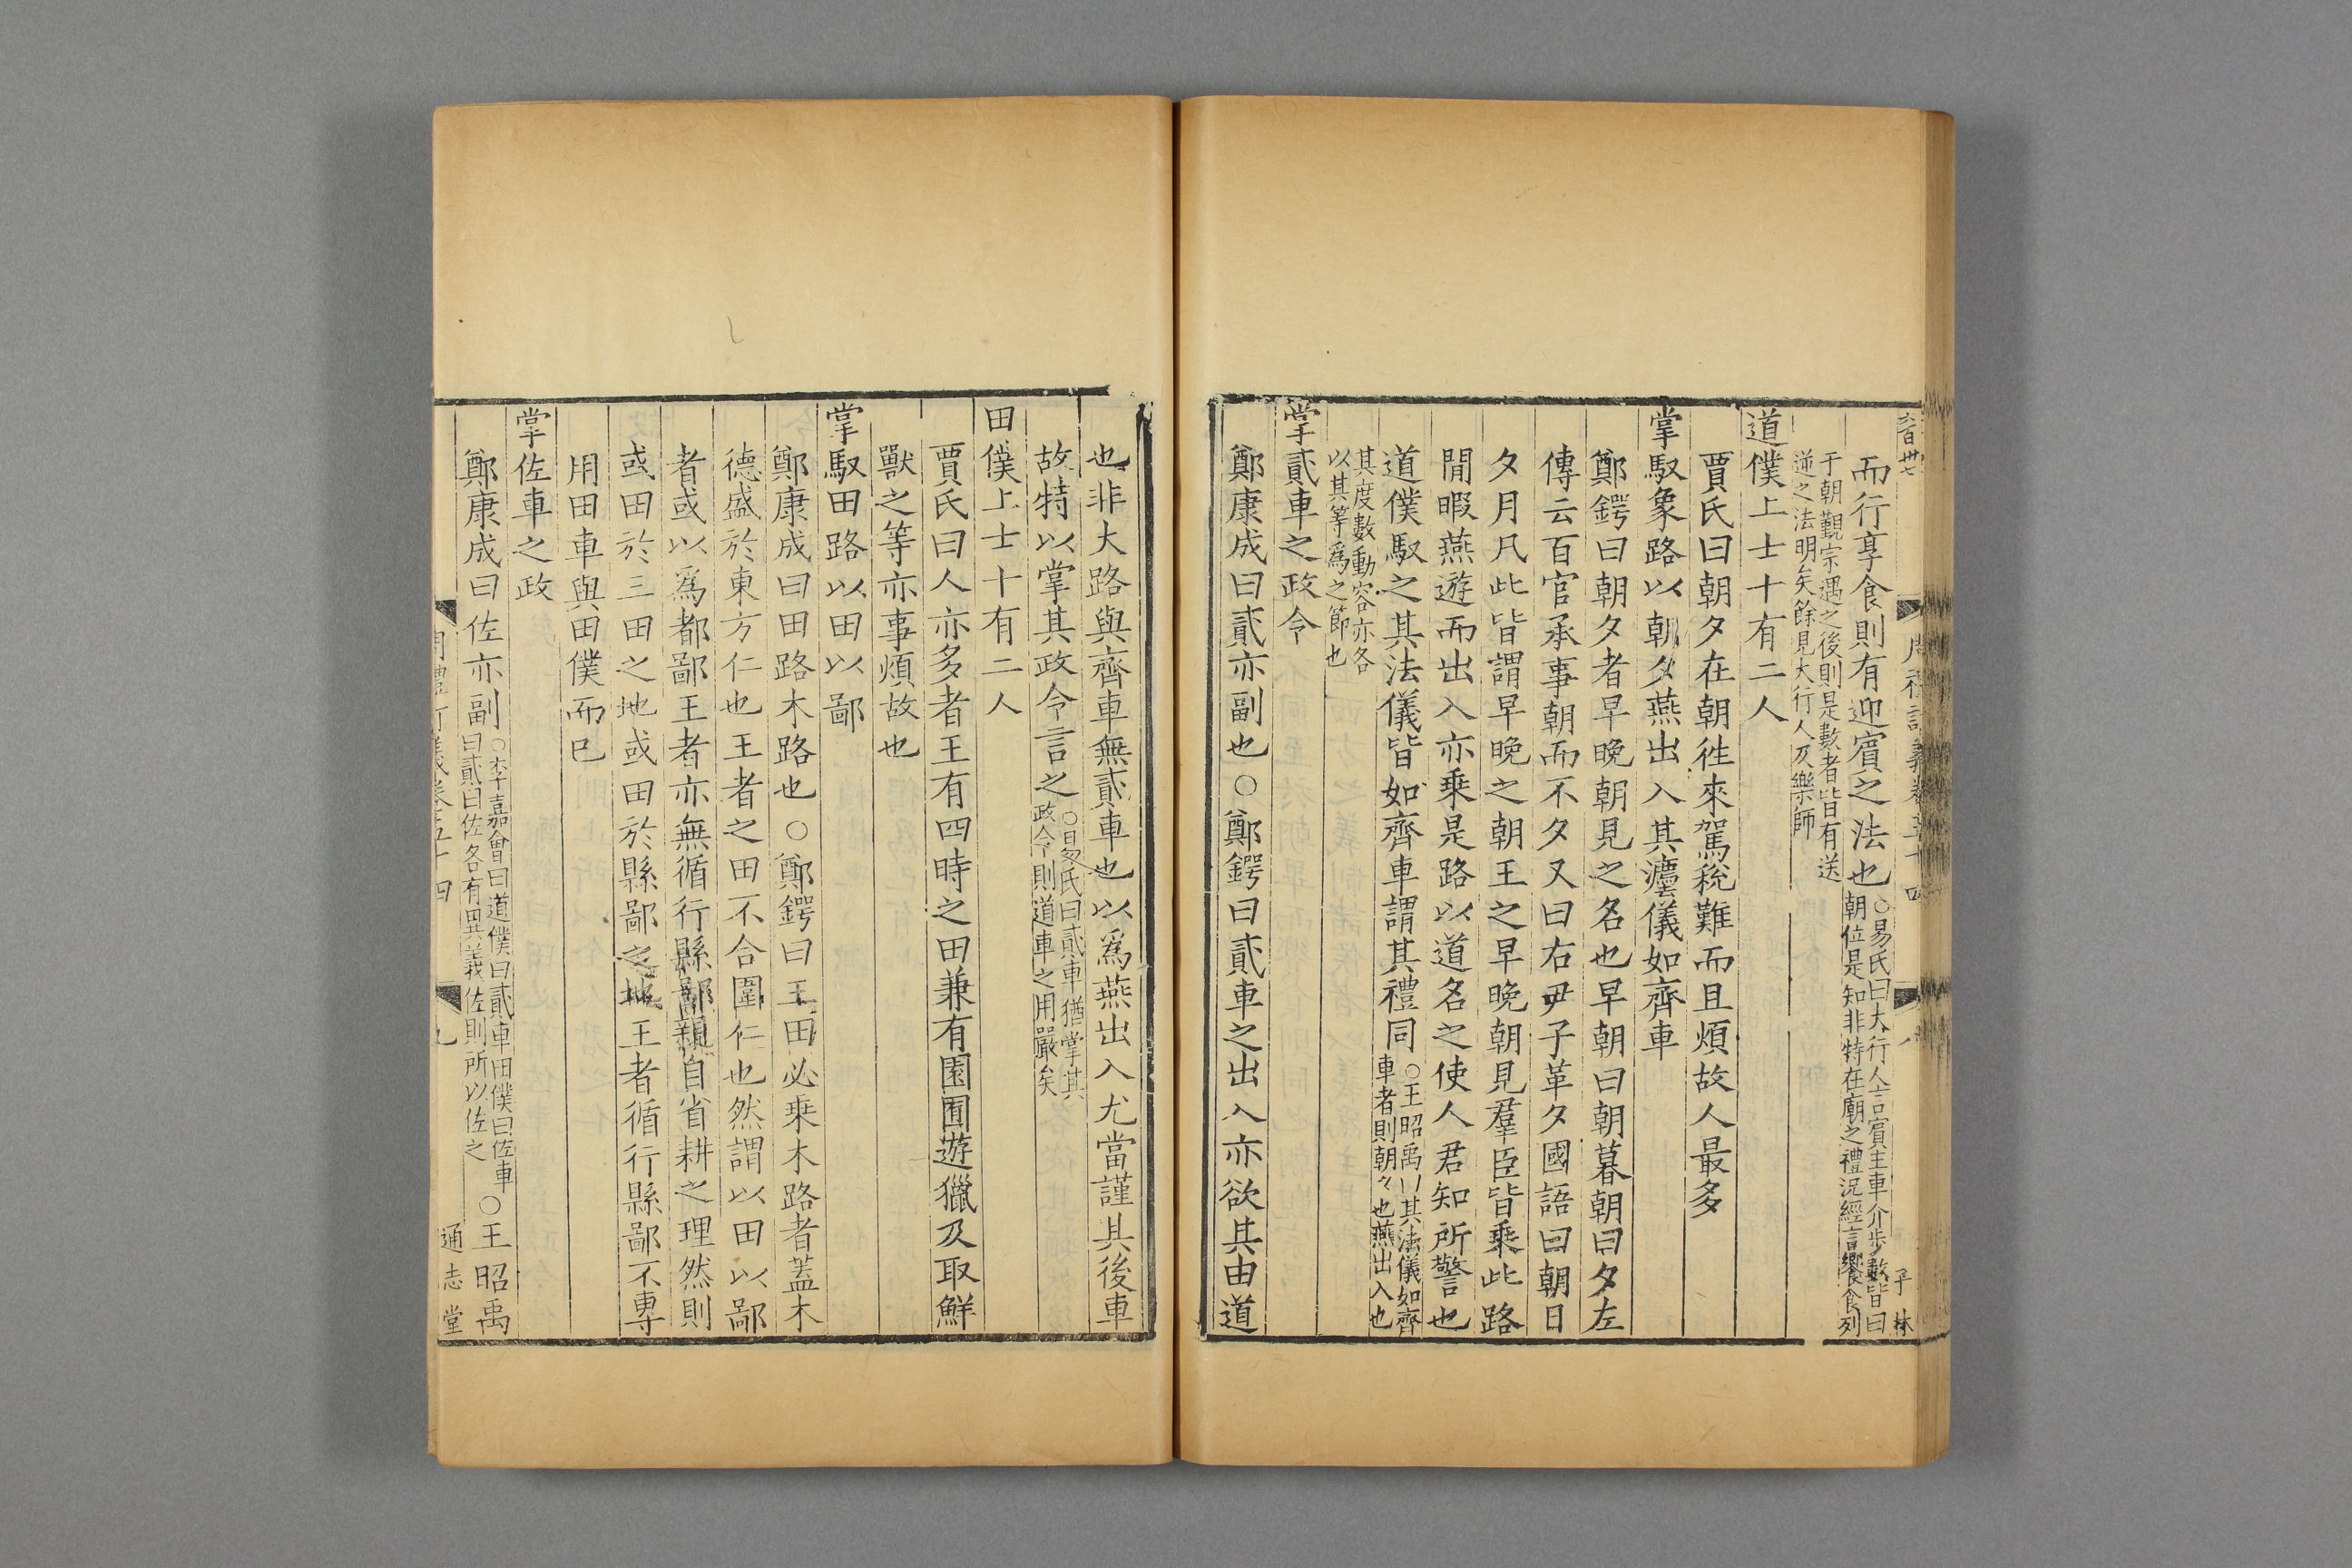 而行享食則有迎賓之法也○易氏曰大行人言賓主車介步數皆曰朝位是知非特在廟之禮況經言饗食列
于朝覲宗遇之後則是數者皆有送逆之法明矣餘見大行人及樂師
道僕上士十有二人
賈氏曰朝夕在朝徃來駕稅難而且煩故人最多
掌馭象路以朝夕燕出入其灋儀如齊車
鄭鍔曰朝夕者早晚朝見之名也早朝曰朝暮朝曰夕左
傳云百官承事朝而不夕又曰右尹子革夕國語曰朝日
夕月凡此皆謂早晚之朝王之早晚朝見羣臣皆乘此路
閒暇燕遊而出入亦乗是路以道名之使人君知所警也
道僕馭之其法儀皆如齊車謂其禮同○王昭禹以其法儀如齊車者則朝夕也燕出入也
其度數動容亦各以其等爲之節也
掌貳車之政令
鄭康成曰貳亦副也○鄭鍔曰貳車之出入亦欲其由道
也非大路與齊車無貳車也以爲燕出入尤當謹其後車
故特以掌其政令言之○易氏曰貳車猶掌其政令則道車之用嚴矣
田僕上士十有二人
賈氏曰人亦多者王有四時之田兼有園囿遊獵及取鮮
獸之等亦事煩故也
掌馭田路以田以鄙
鄭康成曰田路木路也○鄭鍔曰王田必乗木路者蓋木
德盛於東方仁也王者之田不合圍仁也然謂以田以鄙
者或以爲都鄙王者亦無循行縣鄙親自省耕之理然則
或田於三田之地或田於縣鄙之地王者循行縣鄙不專
用田車與田僕而已
掌佐車之政
鄭康成曰佐亦副○李嘉會曰道僕曰貳車田僕曰佐車曰貳曰佐各有異義佐則所以佐之○王昭禹
通志堂